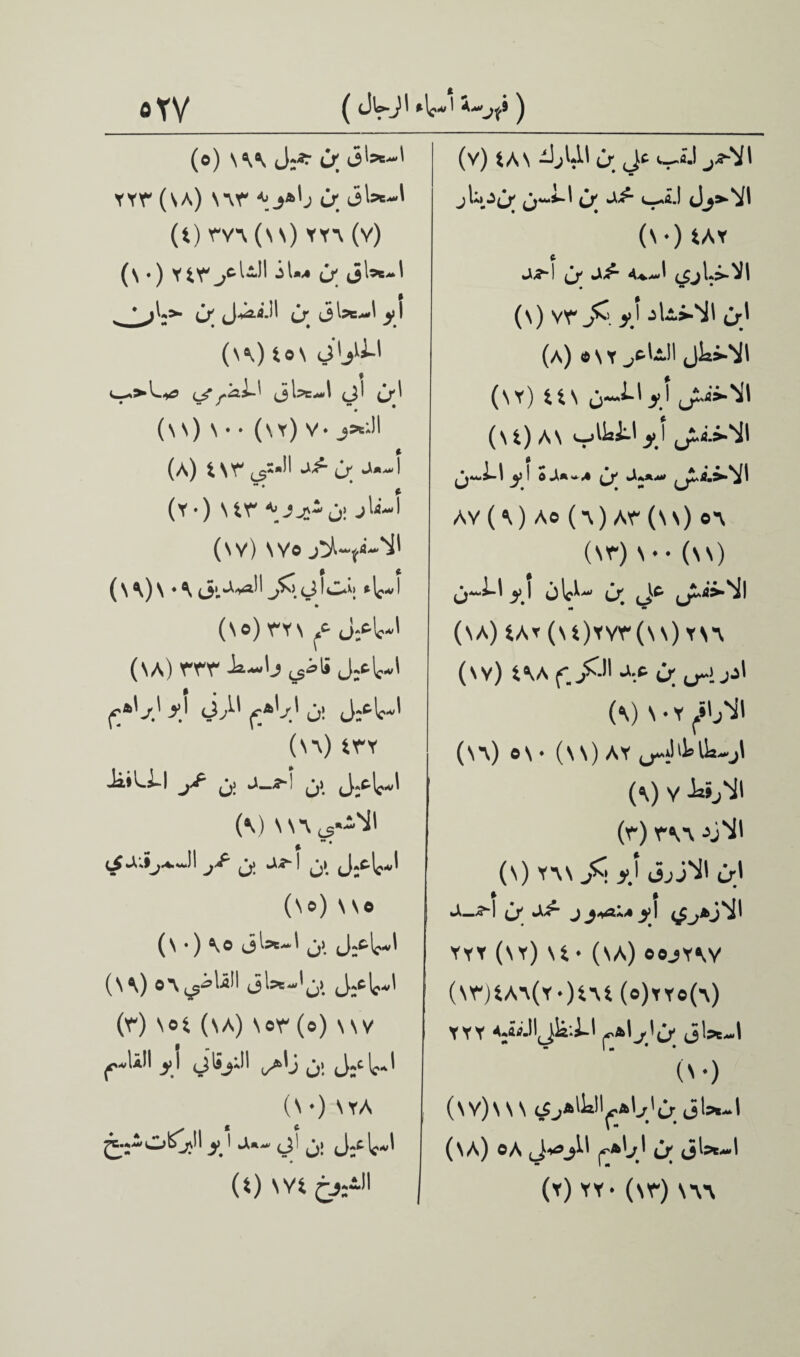 ٥٢٧ ( فهرسة أسماء الرجال )
الأحمر لقب على بن المبارك ٤٨١ (٧)
الأحول لقب محمد بن الحسن بن دينار
٤٨٢ (١٠)
الأخبارى اسمه محمد بن أحمد
ابن الأخشاد أبو بكر ٧٣ (١)
الأخطل الشاعر ٥١٢ (٨)
الأخفش أبو الحسن ٤٤١ (١٢)
الأخفش أبو الخطاب ٨١ (١٤)
الأخفش سعيد بن مسعدة أبو الحسن
٥٦ (١١) ٨٣ (٦) ٨٥ (٩) ٨٧
(١١) ١٠٠ (١٣)
الأخفش على بن سليمان أبو الحسن
٢١٦ (١١) ٢٧٣ (١٤) ٤٨٢ (١٨)
ادريس بن عبد الكريم ٤٩٨ (١٧)
١٠٢ (٩)
ارسطاطاليس ٨٢ (١١) ٥١٠ (١٦)
الأرقط ٧ (٩)
الأزد ٣٩٦ (٣)
ابن الأزرق أبو بكر ٢١١ (١)
الأزهرى أبو منصور محمد بن أحمد
٢٩٧و٥٥ (١٨) ١٤٠ (١٢) ٢٢٢
(٦)٢٢٥(٥) ٤٦٤(٢٠)٤٨٦(١٣)
اسحاق بن ابراهيم الحنظلى الفقيه ٢٢٢
(١٠)
اسحاق بن ابراهيم الطاهرى ١١١(١٧)
اسحاق بن ابراهيم الموصلى ٥٨ (١٨)
١٦٦ (١٣) ٢٢٠ (٢)
اسحاق بن جميل ١٩٩ (٥)
اسحاق بن راهويه ١٦٣ (١٨) ٢٢٣
(٧) ٢٢٦ (١١) ٣٧٦ (٤)
اسحاق بن معاذ الشاعر ٢٤٣ (١٠)
أبو اسحاق بن الفضل بن
٤٥١ (١٩)
ابن أبى اسحاق الحضرمى صاحب
النحو ٧٠ (١٢) ١٠٠ (١١)
أسعد بن محمد العتبى ٤١٣ (٨)
أسفار بن شيرويه ١٤٣ (٢٠)
الأسفهسلار ١٧٥ (١٧)
أسماء بنت أبى بكر الصديق ١٠٩ (١٩)
اسماعيل عم ٣٢١ (١٥)
اسماعيل قاضى واسط ٣٣٣ (١٨)
اسماعيل بن ابراهيم أبو ابراهيم
٤٣٢ (١٦)
اسماعيل بن أحمد بن عمر الحافظ
الأشعثى ١١٦ (٩)
اسماعيل بن أحمد بن عمر السمرقندى
١١٥ (١٥)
اسماعيل بن اسحاق ٩٥ (١٠)
اسماعيل بن اسحاق القاضى ٥٦ (١٩)
١١٧ (٥) ١٥٣ (١٨) ١٥٤ (٣)
اسماعيل بن زاهر النوقانى أبو القاسم
١٢٨ (١٠)
اسماعيل بن أبى سعد أبو البركات شيخ
الشيوخ ١٧٤ (٤)